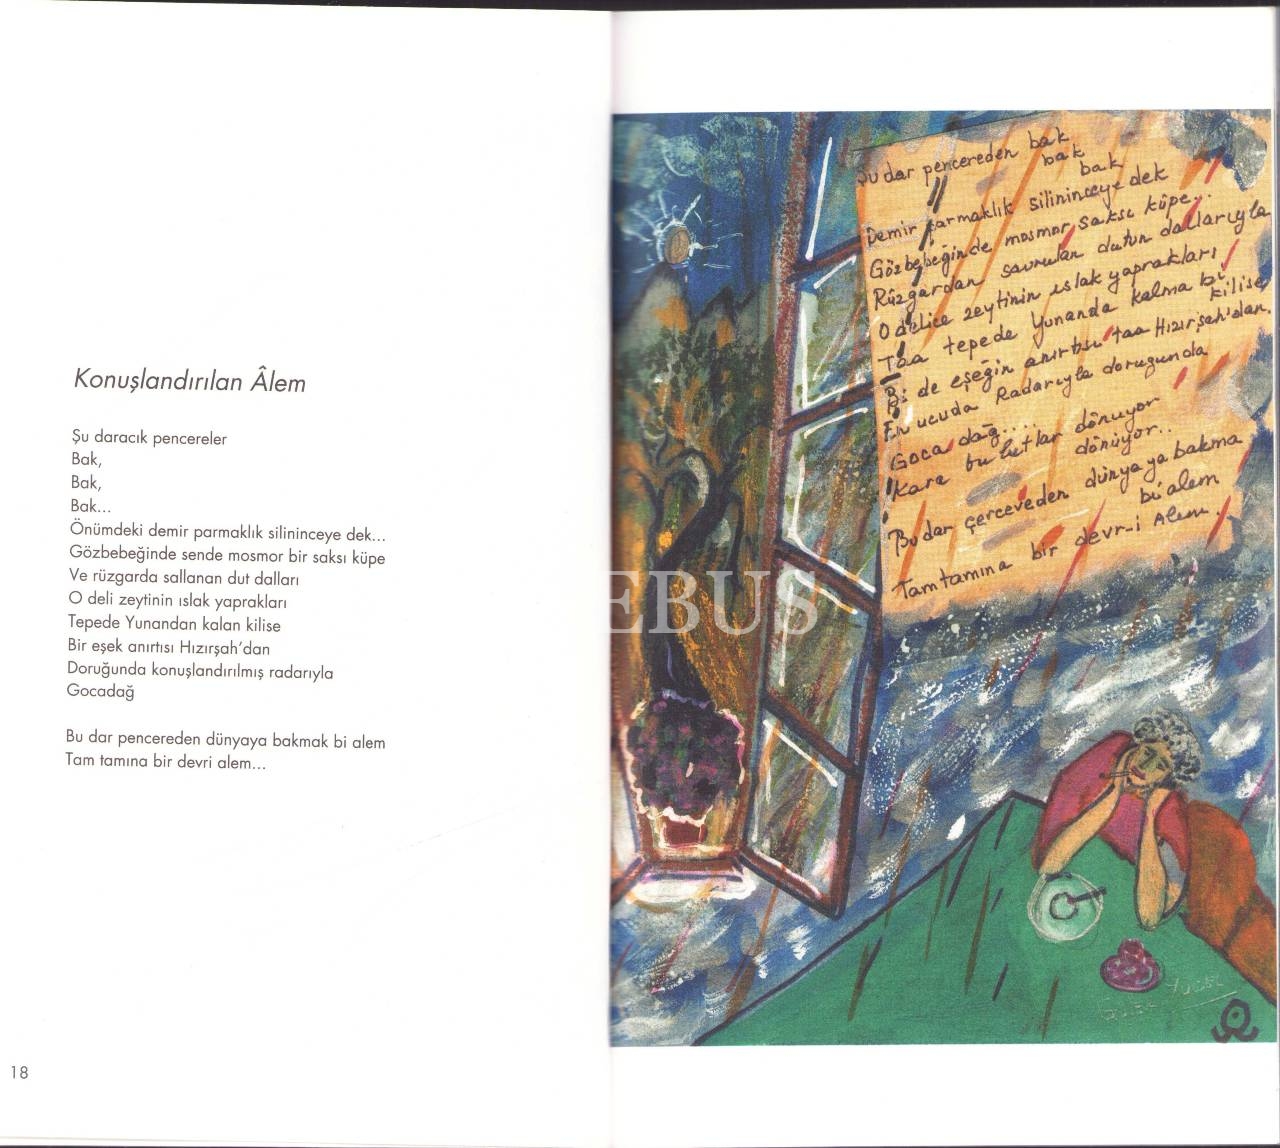 Konuşlandırılan Âlem
Şu daracık pencereler
Bak,
Bak,
Bak...
Önümdeki demir parmaklık silininceye dek...
Gözbebeğinde sende mosmor bir saksı küpe
Ve rüzgarda sallanan dut dalları
O deli zeytinin ıslak yaprakları
Tepede Yunandan kalan kilise
Bir eşek anırtısı Hızırşah'dan
Doruğunda konuşlandırılmış radarıyla
Gocadağ
Bu dar pencereden dünyaya bakmak bi alem
Tam tamına bir devri alem...
18
Şu dar pencereden bak
bak
bak
Demir parmaklık silininceye dek
Gözbebeğinde mosmor saksı küpe..
Rüzgardan savrulan dutun dallarıyla
O delice zeytinin ıslak yaprakları
Taa tepede Yunanda kalma bi
kilise
Bi de eşeğin anırtısı taa Hızırşah'dan.
En ucuda Radarıyla doruğunda
Goca dağ....
Kara bulutlar dönüyor
dönüyor..
Bu dar çerçeveden dünyaya bakma
bi alem
Tamtamına bir devr-i Alem.
EBUS
Güler Yücel